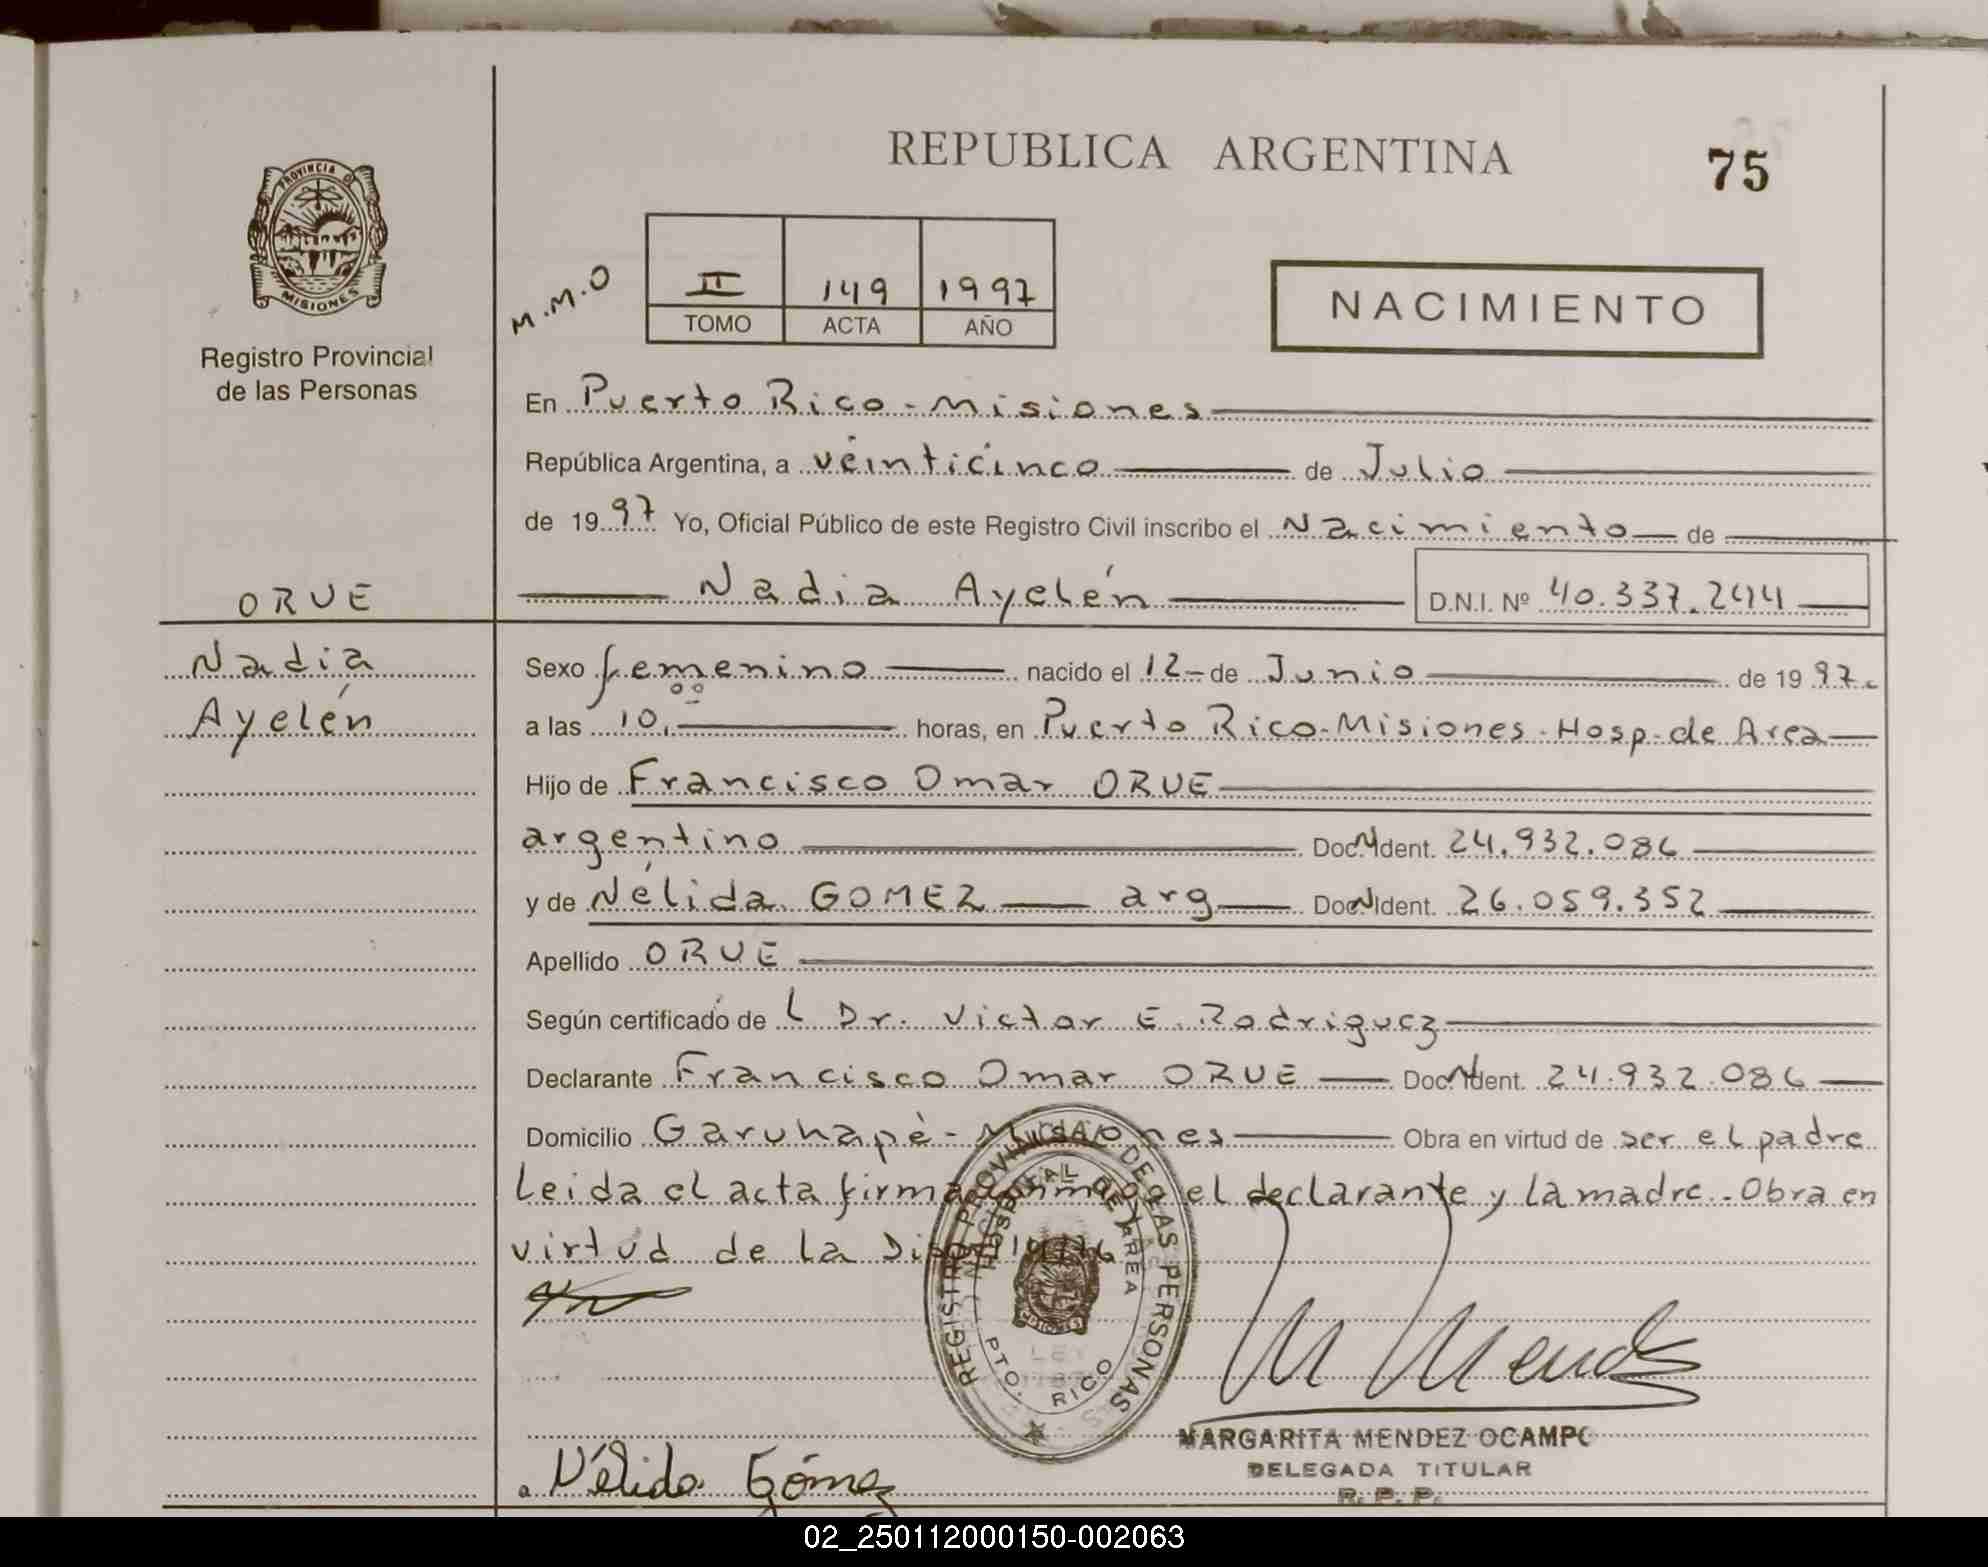 REPUBLICA ARGENTINA
75
PROVINCIA D
MISIONES
Registro Provincial
de las Personas
M.M.O
II 149 1997
TOMO ACTA AÑO
NACIMIENTO
En Puerto Rico - Misiones
República Argentina, a veinticinco de Julio
de 1997 Yo, Oficial Público de este Registro Civil inscribo el Nacimiento de
ORUE
Nadia Ayelén D.N.I. Nº 40.337.244
Nadia
Ayelén
Sexo femenino nacido el 12 de Junio de 1997.
a las 10,00 horas, en Puerto Rico-Misiones-Hosp. de Area
Hijo de Francisco Omar ORUE
argentino Doc.N Ident. 24.932.086
y de Nélida GOMEZ arg Doc.N Ident. 26.059.352
Apellido ORUE
Según certificado de L Dr. Victor E. Rodriguez
Declarante Francisco Omar ORUE Doc.N Ident. 24.932.086
Domicilio Garuhapè - Misiones Obra en virtud de ser el padre
Leida el acta firman conmigo el declarante y la madre.-Obra en
virtud de la
REGISTRO PROVINCIAL DE LAS PERSONAS
HOSPITAL DE AREA
PTO. RICO
M Mendez
MARGARITA MENDEZ OCAMPO
DELEGADA TITULAR
R. P. P.
Nélida Gómez
02_250112000150-002063